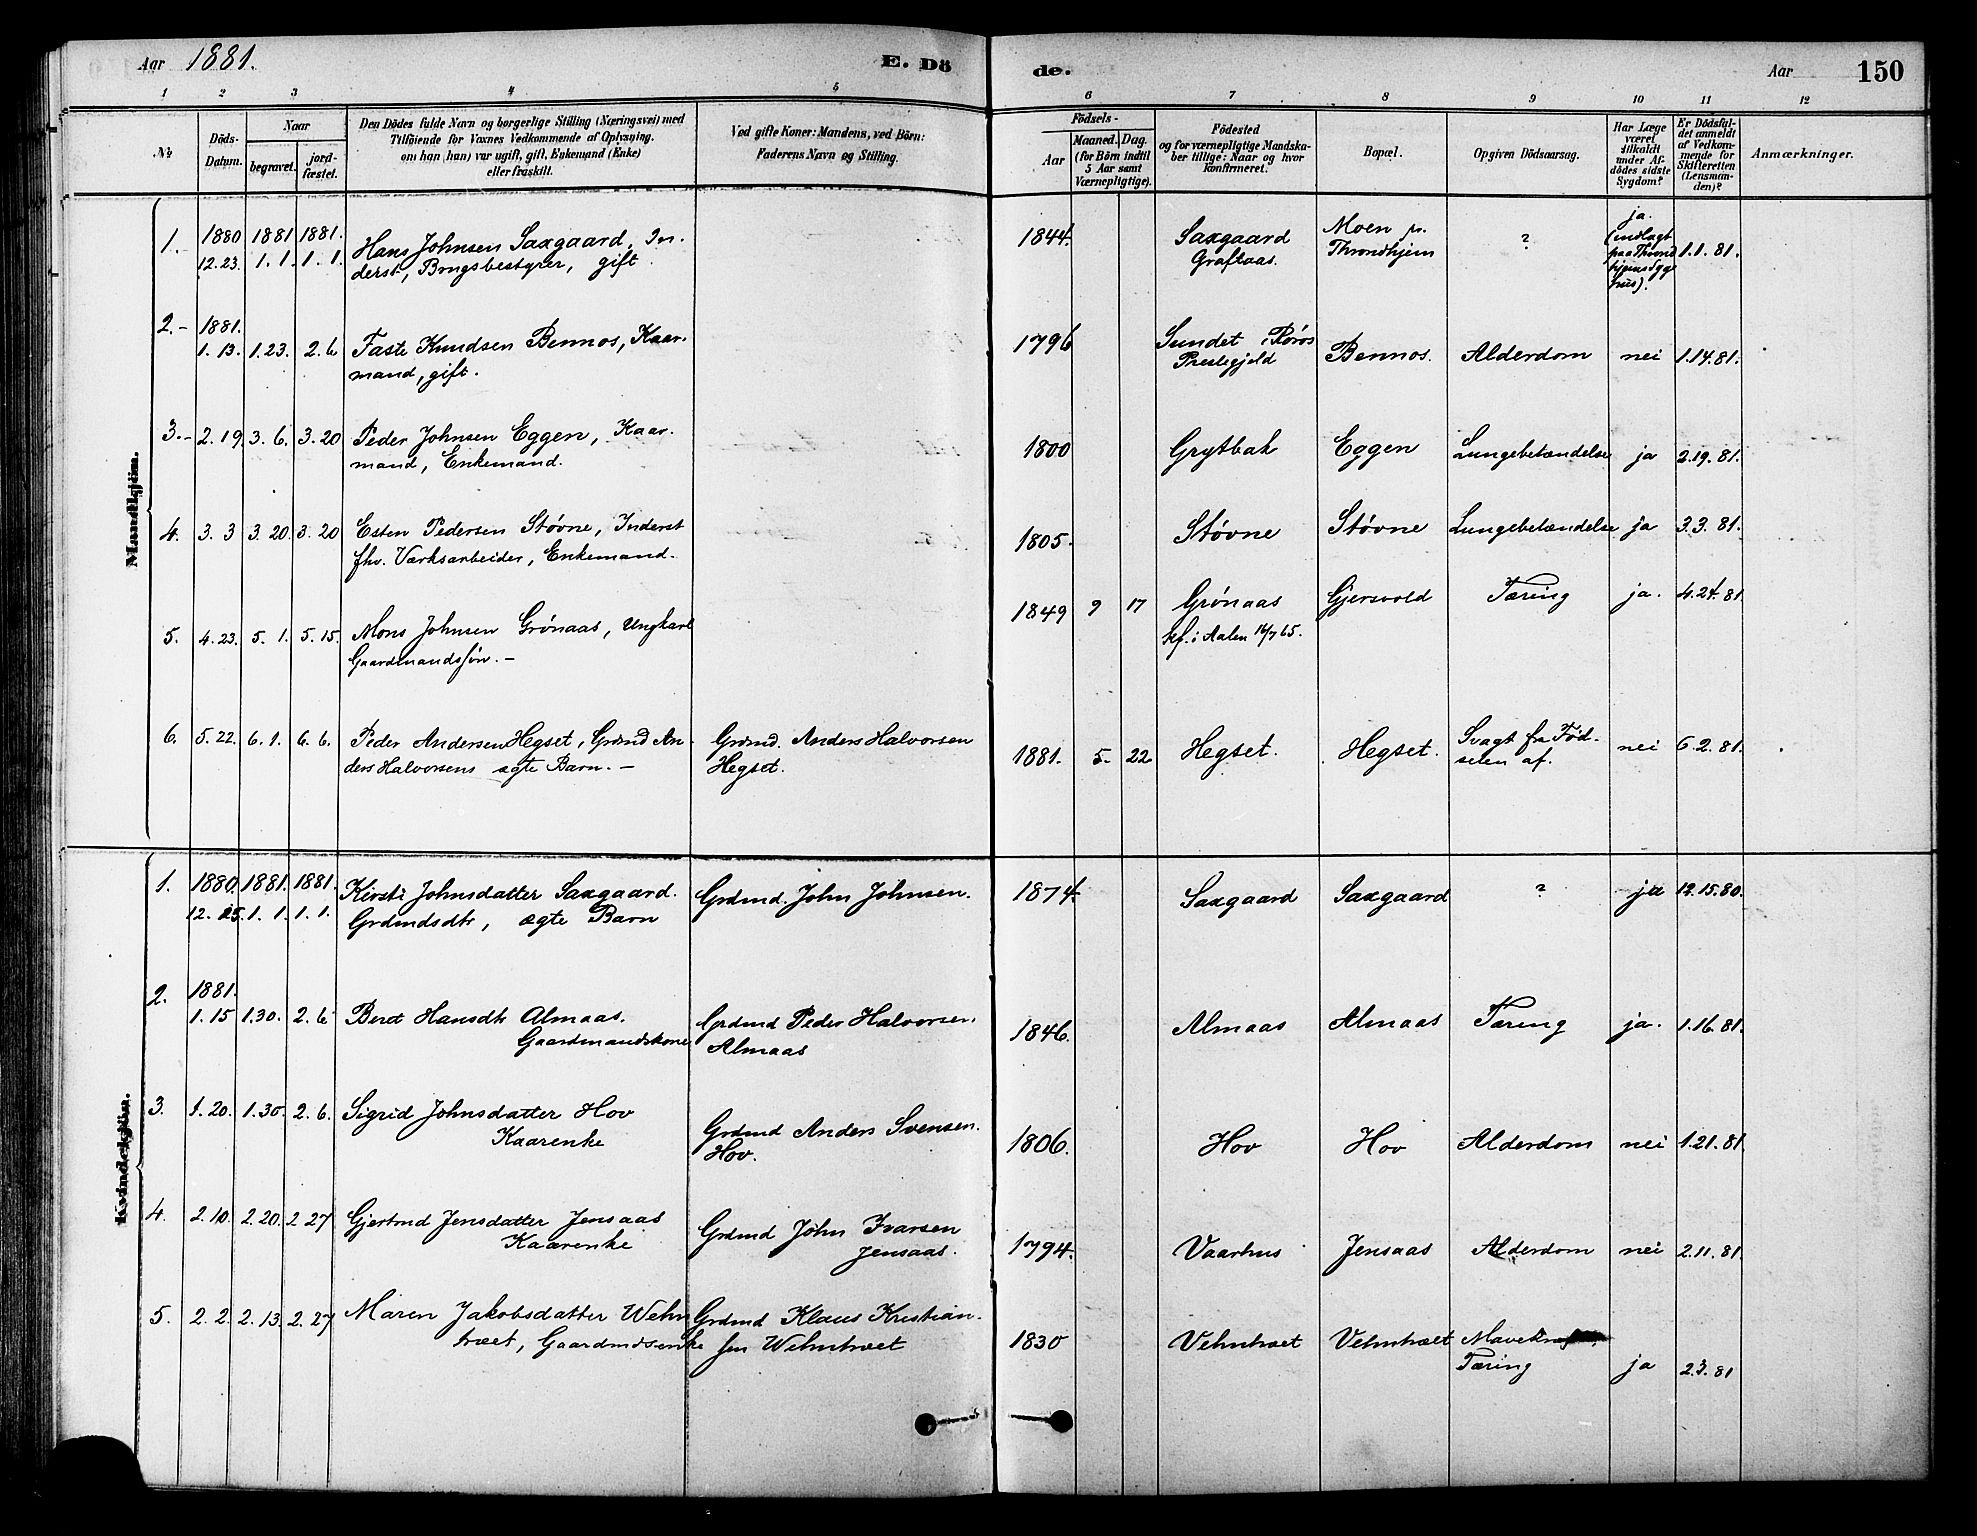 Aar 1881. E. Dö de. Aar 150
1 2 3 4 5 6 7 8 9 10 11 12
№
Döds-
Datum.
Naar
begravet.
jord-
fæstet.
Den Dödes fulde Navn og borgerlige Stilling (Næringsvei) med
Tilföiende for Voxnes Vedkommende af Oplysning,
om han (hun) var ugift, gift, Enkemand (Enke)
eller fraskilt.
Ved gifte Koner: Mandens, ved Börn:
Faderens Navn og Stilling.
Födsels-
Aar
Maaned. Dag.
(for Börn indtil
5 Aar samt
Værnepligtige).
Födested
og for værnepligtige Mandska-
ber tillige: Naar og hvor
konfirmeret.
Bopæl.
Opgiven Dödsaarsag.
Har Læge
været
tilkaldt
under Af-
dödes sidste
Sygdom?
Er Dödsfal-
det anmeldt
af Vedkom-
mende for
Skifteretten
(Lensman-
den)?
Anmærkninger.
Mandkjön.
1. 1880 1881 1881. Hans Johnsen Saxgaard, In- 1844. Saxgaard Moen pr. ? ja.
12.23. 1.1. 1.1. derst, Brugsbestyrer, gift Graftaas. Throndhjem (indlagt 1.1.81.
paa Thrond
hjems Syge
hus).
2.- 1881.
1.13. 1.23. 2.6 Faste Knudsen Bennos, Kaar- 1796 Sundet i Røros Bennos. Alderdom nei 1.14.81.
mand, gift. Prestegjeld
3.- 2.19. 3.6. 3.20 Peder Johnsen Eggen, Kaar- 1800 Grytbak Eggen Lungebetændelse ja 2.19.81.
mand, Enkemand.
4. 3.3 3.20. 3.20 Esten Pedersen Støvne, Inderst 1805. Støvne Støvne Lungebetændelse ja 3.3.81.
fhv. Værksarbeider, Enkemand.
5. 4.23. 5.1. 5.15. Mons Johnsen Grønaas, Ungkarl 1849 9 17 Grønaas Gjersvold Tæring ja. 4.24.81
Gaardmandssøn. - kf. i Aalen 16/7 65.
6. 5.22. 6.1. 6.6. Peder Andersen Hegset, Grdmd An- Grdmd. Anders Halvorsen 1881. 5. 22 Hegset. Hegset. Svagt fra Fød- nei 6.2.81.
ders Halvorsens ægte Barn. - Hegset. selen af.
Kvindekjön.
1. 1880. 1881. 1881. Kirsti Johnsdatter Saxgaard. Grdmd. John Johnsen. 1874. Saxgaard Saxgaard ? ja 12.15.80.
12.15. 1.1. 1.1. Grdmdsdtr, ægte Barn
2. 1881.
1.15 1.30. 2.6 Berit Hansdtr Almaas. Grdmd Peder Halvorsen 1846. Almaas Almaas Tæring ja. 1.16.81.
Gaardmandskone Almaas
3. 1.20. 1.30. 2.6. Sigrid Johnsdatter Hov Grdmd Anders Svensen. 1806. Hov Hov Alderdom nei 1.21.81.
Kaarenke Hov.
4. 2.10. 2.20. 2.27 Gjertrud Jensdatter Jensaas Grdmd John Ivarsen 1794. Vaarhus Jensaas Alderdom nei 2.11.81.
Kaarenke Jensaas.
5. 2.2. 2.13. 2.27 Maren Jakobsdatter Wehn Grdmd Klaus Kristian- 1830 Vehntræet Vehntræet
træet, Gaardmdsenke sen Wehntræet Tæring ja 2.3.81